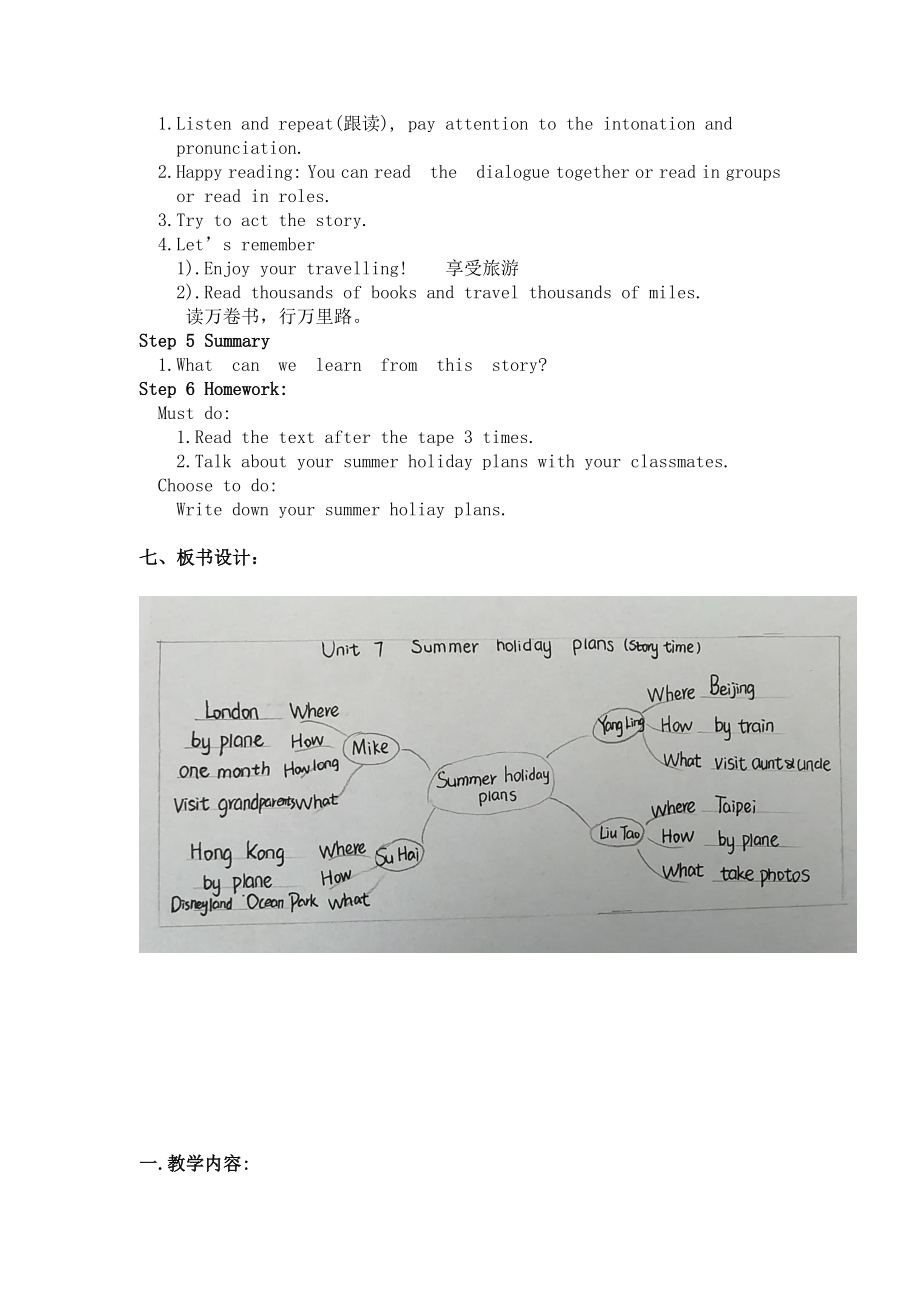 1.Listen and repeat(跟读), pay attention to the intonation and
pronunciation.
2.Happy reading: You can read the dialogue together or read in groups
or read in roles.
3.Try to act the story.
4.Let’s remember
1).Enjoy your travelling! 享受旅游
2).Read thousands of books and travel thousands of miles.
读万卷书，行万里路。
Step 5 Summary
1.What can we learn from this story?
Step 6 Homework:
Must do:
1.Read the text after the tape 3 times.
2.Talk about your summer holiday plans with your classmates.
Choose to do:
Write down your summer holiay plans.
七、板书设计：
Unit 7 Summer holiday plans (Story time)
London Where
by plane How
one month How long
Visit grandparents What
Mike
Hong Kong Where
by plane How
Disneyland Ocean Park What
Su Hai
Summer holiday
plans
Yang Ling
Where Beijing
How by train
What visit aunt & uncle
Liu Tao
Where Taipei
How by plane
What take photos
一.教学内容：